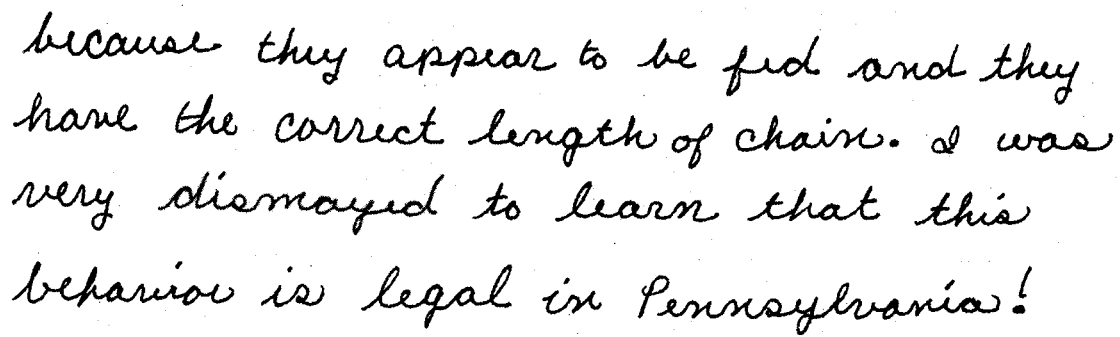 because they appear to be fed and they
have the correct length of chain. I was
very dismayed to learn that this
behavior is legal in Pennsylvania!